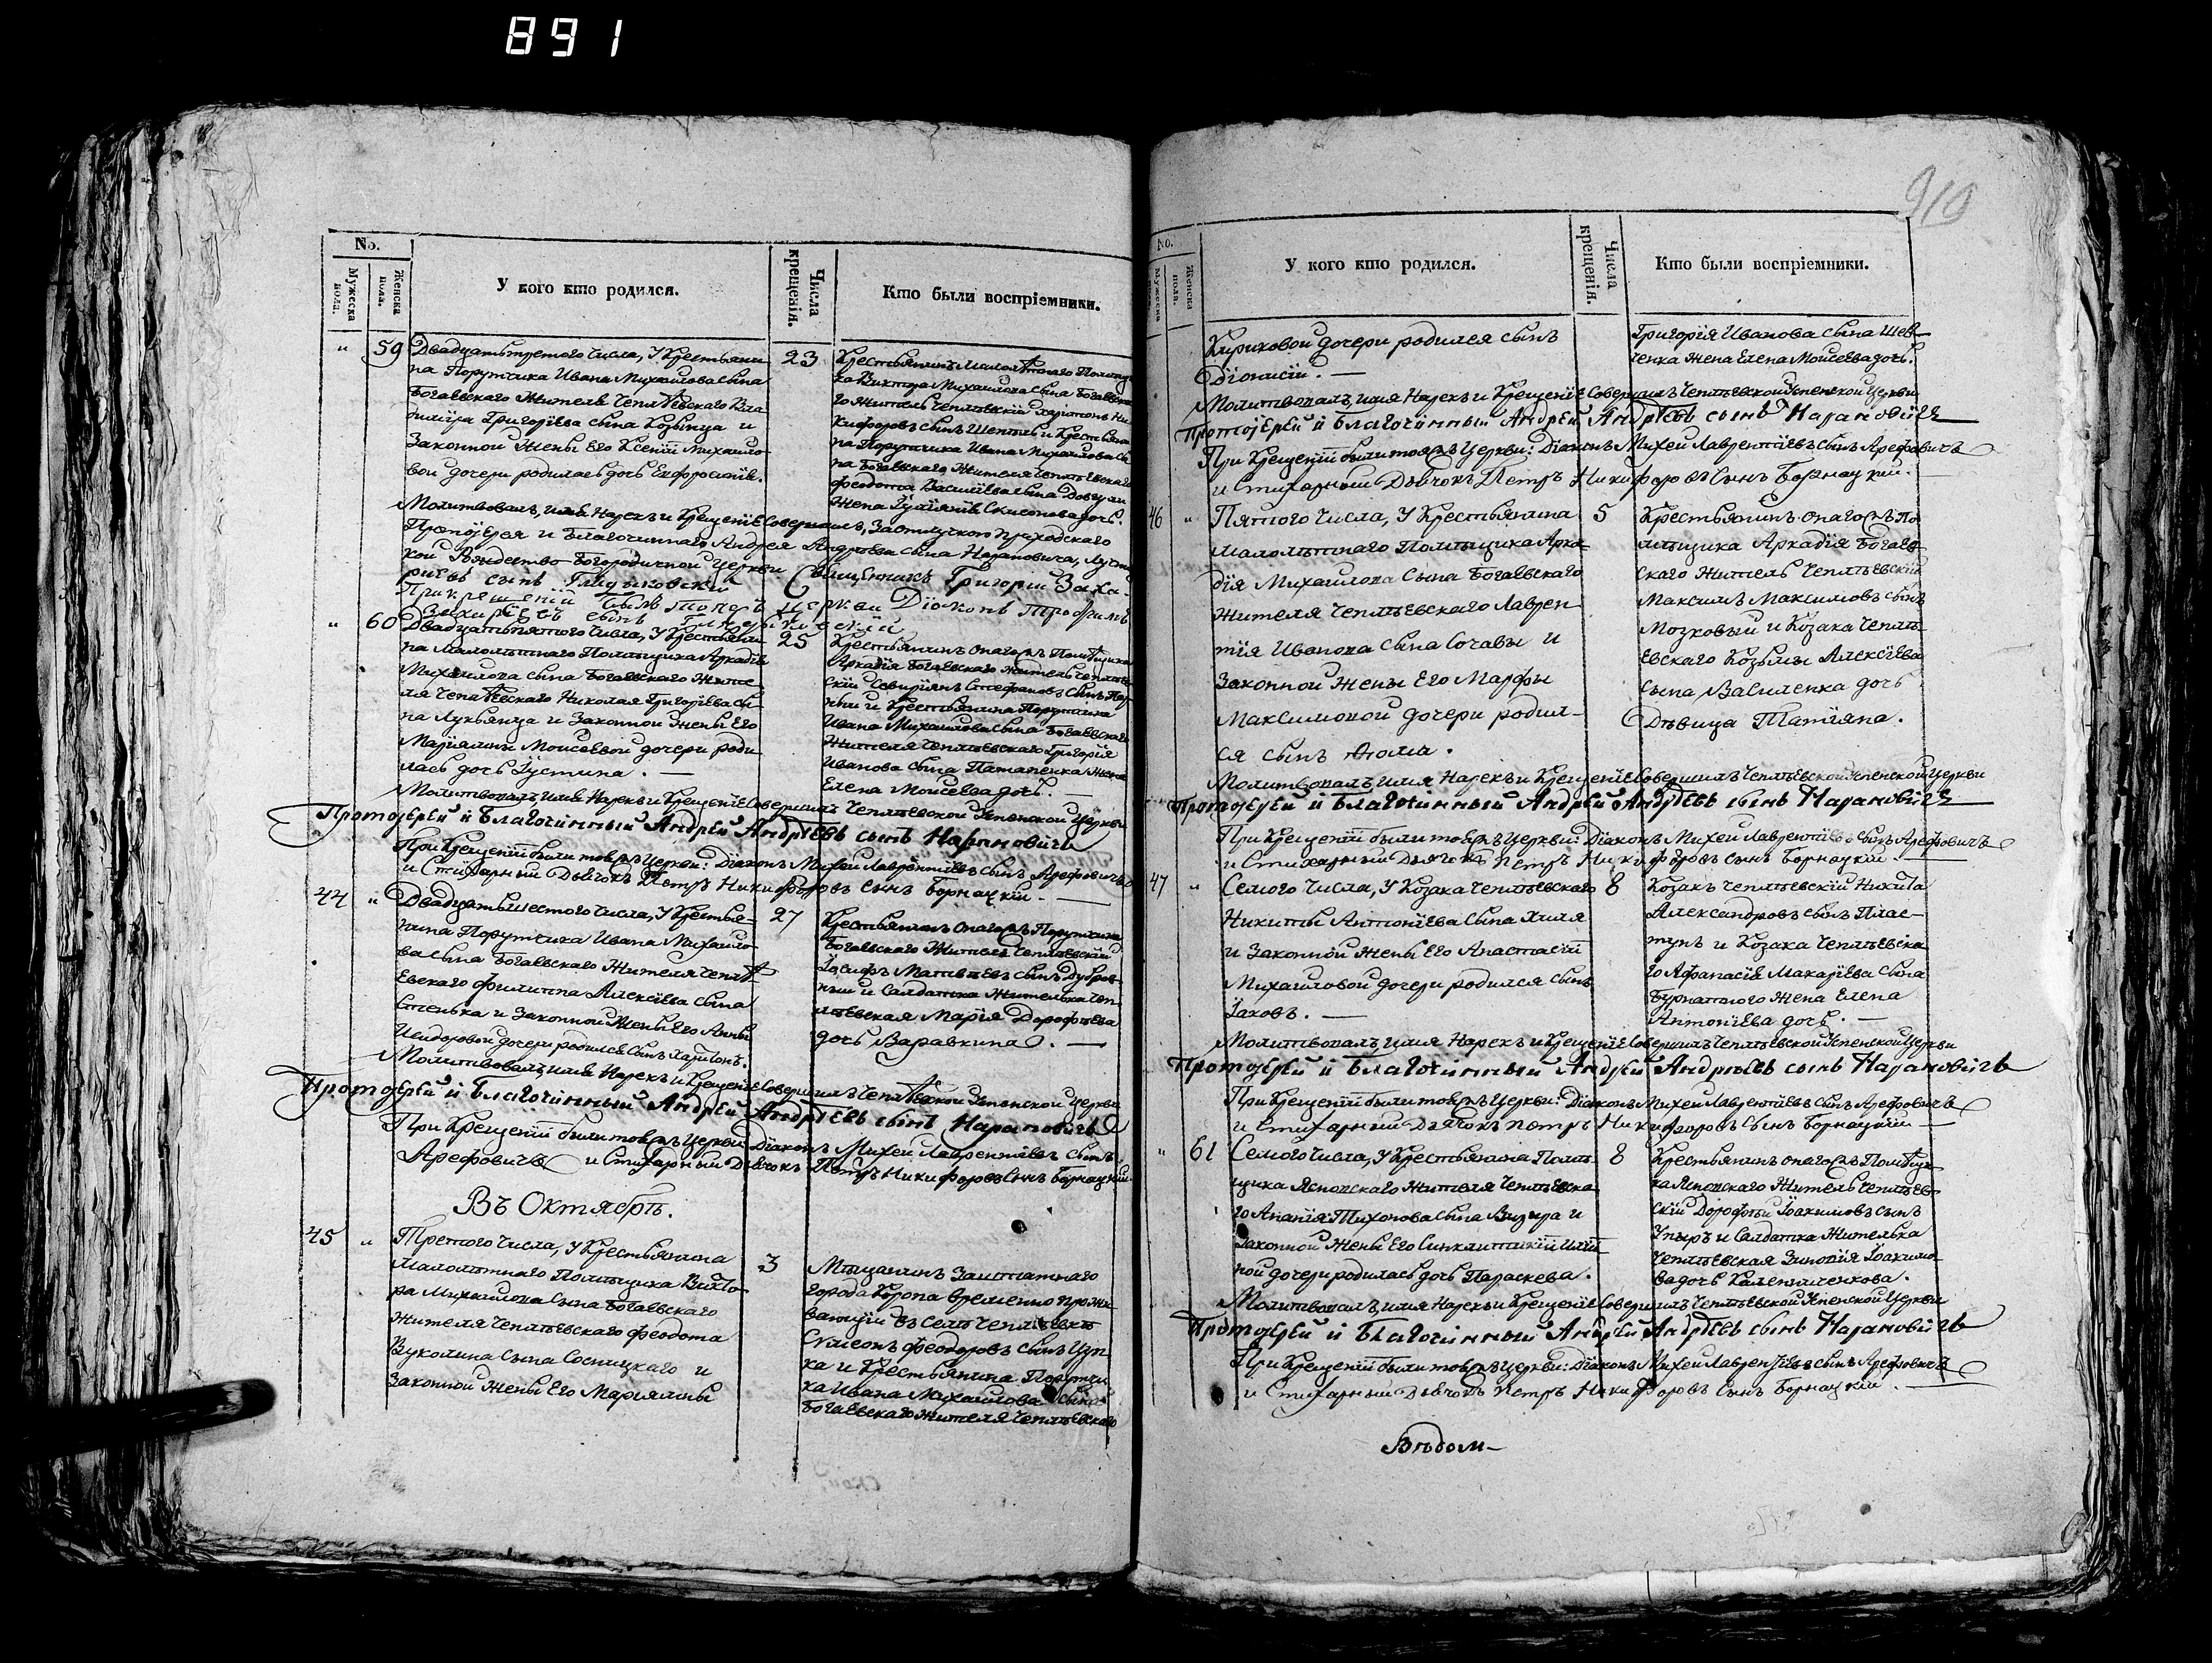 891
910
No.
Мужеска пола.
Женска пола.
У кого кто родился.
Числа крещенія.
Кто были воспріемники.
" 59 23
Двадцать третого числа, У Крестьяни
на Порутчика Ивана Михаилова сына
Богаевского Жителя Чеплѣевского
Григорїева сына и
Законной Жены Его Ксенїи Михаило
вой дочери родилась дочь Евфросинїя.
Крестьянинъ Малолѣтнаго Помѣщи
ка Виктора Михаилова сына Богаевска
го Житель Чеплѣевскїй Харитонъ Ни
кифоровъ сынъ и Крестьяни
на Порутчика Ивана Михаилова сы
на Богаевского Жителя Чеплѣевскаго
Феодота Василїева сына
Жена дочь.
Молитвовалъ, имя Нарекъ и Крещенїе Совершилъ, За отлучкою Приходского
Протоїерея и Благочинного Андрея Андреева сына Нарановича,
кой Рождество-Богородичной Церкви Священникъ Григорїй Заха-
рїевъ сынъ
При крещенїи былъ тояжъ церкви Дїаконъ Трофимъ
Захарїевъ сынъ
" 60 25
Двадцать пятого числа, У Крестьяни
на Малолѣтнаго Помѣщика Аркадїя
Михаилова сына Богаевского Жите
ля Чеплѣевского Николая Григорїева сы
на Лукьянца и Законной Жены Его
Марїямны Моисеевой дочери роди
лась дочь Їустина. —
Крестьянинъ онагожъ Помѣщика
Аркадїя Богаевского Житель Чеплѣев
скїй Стефановъ сынъ
и Крестьянина Порутчика
Ивана Михаилова сына Богаевского
Жителя Чеплѣевского Григорїя
Иванова сына Жена
Елена Моисеева дочь. —
Молитвовалъ имя Нарекъ и Крещенїе Совершилъ Чеплѣевской Успенской Церкви
Протоїерей и Благочинный Андрей Андрѣевъ сынъ Нарановичъ
При Крещенїи были тояжъ Церкви: Дїаконъ Михей Лаврентїевъ сынъ Арефовичъ
и Стихарный Дьячокъ Петръ Никифоровъ сынъ Борнацкїй. —
44 " 27
Двадцать шестого числа, У Крестья-
нина Порутчика Ивана Михаило
ва сына Богаевского Жителя Чеплѣ
евского Филиппа Алексїева сына
Стенька и Законной Жены Его Анны
Исидоровой дочери родился сынъ Харитонъ.
Крестьянинъ онагожъ Порутчика
Богаевского Житель Чеплѣевскїй
Їосифъ Матвѣевъ сынъ Дубров
ный и Салдатка Жителька Чеп
лѣевская Марїя Дорофѣева
дочь Варавкина. —
Молитвовалъ имя Нарекъ и Крещенїе Совершилъ Чеплѣевской Успенской Церкви
Протоїерей и Благочинный Андрей Андрѣевъ сынъ Нарановичъ
При Крещенїи были тояжъ Церкви Дїаконъ Михей Лаврентїевъ сынъ
Арефовичъ и Стихарный Дьячокъ Петръ Никифоровъ сынъ Борнацкїй
Въ Октябрѣ.
45 " 3
Третого числа, У Крестьянина
Малолѣтнаго Помѣщика Викто
ра Михаилова сына Богаевского
Жителя Чеплѣевского Феодота
Вуколина сына Сосницкого и
Законной Жены Его Марїямны
Мѣщанинъ Заштатнаго
города Коропа временно прожи
вающїй въ Селѣ Чеплѣевкѣ
Симеонъ Феодоровъ сынъ
ка и Крестьянина Порутчи
ка Ивана Михаилова сына
Богаевского Жителя Чеплѣевского
No.
Мужеска
Женска пола.
У кого кто родился.
Числа крещенія.
Кто были воспріемники.
Кириковой дочери родился сынъ
Дїонисїй. —
Григорїя Иванова сына Шев
ченка Жена Елена Моисеева дочь.
Молитвовалъ имя Нарекъ и Крещенїе Совершилъ Чеплѣевской Успенской Церкви
Протоїерей и Благочинный Андрей Андрѣевъ сынъ Нарановичъ
При Крещенїи были тояжъ Церкви: Дїаконъ Михей Лаврентїевъ сынъ Арефовичъ
и Стихарный Дьячокъ Петръ Никифоровъ сынъ Борнацкїй.
46 " 5
Пятого числа, У Крестьянина
Малолѣтнаго Помѣщика Арка-
дїя Михаилова сына Богаевского
Жителя Чеплѣевского Лаврен
тїя Иванова сына Сочавы и
Законной Жены Его Марфы
Максимовой дочери родил-
ся сынъ Фома.
Крестьянинъ онагожъ По
мѣщика Аркадїя Богаев-
ского Житель Чеплѣевскїй
Максимъ Максимовъ сынъ
Мозковый и Козака Чеплѣ
евского Козьмы Алексїева
сына Василенка дочь
Дѣвица Татїяна.
Молитвовалъ имя Нарекъ и Крещенїе Совершилъ Чеплѣевской Успенской Церкви
Протоїерей и Благочинный Андрей Андрѣевъ сынъ Нарановичъ
При Крещенїи были тояжъ Церкви: Дїаконъ Михей Лаврентїевъ сынъ Арефовичъ
и Стихарный Дьячокъ Петръ Никифоровъ сынъ Борнацкїй. —
47 " 8
Семого числа, У Козака Чеплѣевского
Никиты Антонїева сына Хиля
и Законной Жены Его Анастасїи
Михаиловой дочери родился сынъ
Їаковъ. —
Козакъ Чеплѣевскїй Никита
Александровъ сынъ Плас-
тунъ и Козака Чеплѣевска
го Афанасїя Макарїева сына
Бурнатного Жена Елена
Антонїева дочь. —
Молитвовалъ имя Нарекъ и Крещенїе Совершилъ Чеплѣевской Успенской Церкви
Протоїерей и Благочинный Андрей Андрѣевъ сынъ Нарановичъ
При Крещенїи были тояжъ Церкви: Дїаконъ Михей Лаврентїевъ сынъ Арефовичъ
и Стихарный Дьячокъ Петръ Никифоровъ сынъ Борнацкїй —
" 61 8
Семого числа, У Крестьянина Помѣ-
щика Яснопского Жителя Чеплѣевска
го Ананїя Тихонова сына Визира и
Законной Жены Его Синклитикїи
ной дочери родилась дочь Параскева.
Крестьянинъ онагожъ Помѣщи
ка Яснопского Житель Чеплѣев
скїй Дорофей Їоакимовъ сынъ
Упыръ и Салдатка Жителька
Чеплѣевская Зиновїя Їоакимо
ва дочь Калениченкова.
Молитвовалъ имя Нарекъ и Крещенїе Совершилъ Чеплѣевской Успенской Церкви
Протоїерей и Благочинный Андрей Андрѣевъ сынъ Нарановичъ
При Крещенїи были тояжъ Церкви: Дїаконъ Михей Лаврентїевъ сынъ Арефовичъ
и Стихарный Дьячокъ Петръ Никифоровъ сынъ Борнацкїй. —
Вѣдом-